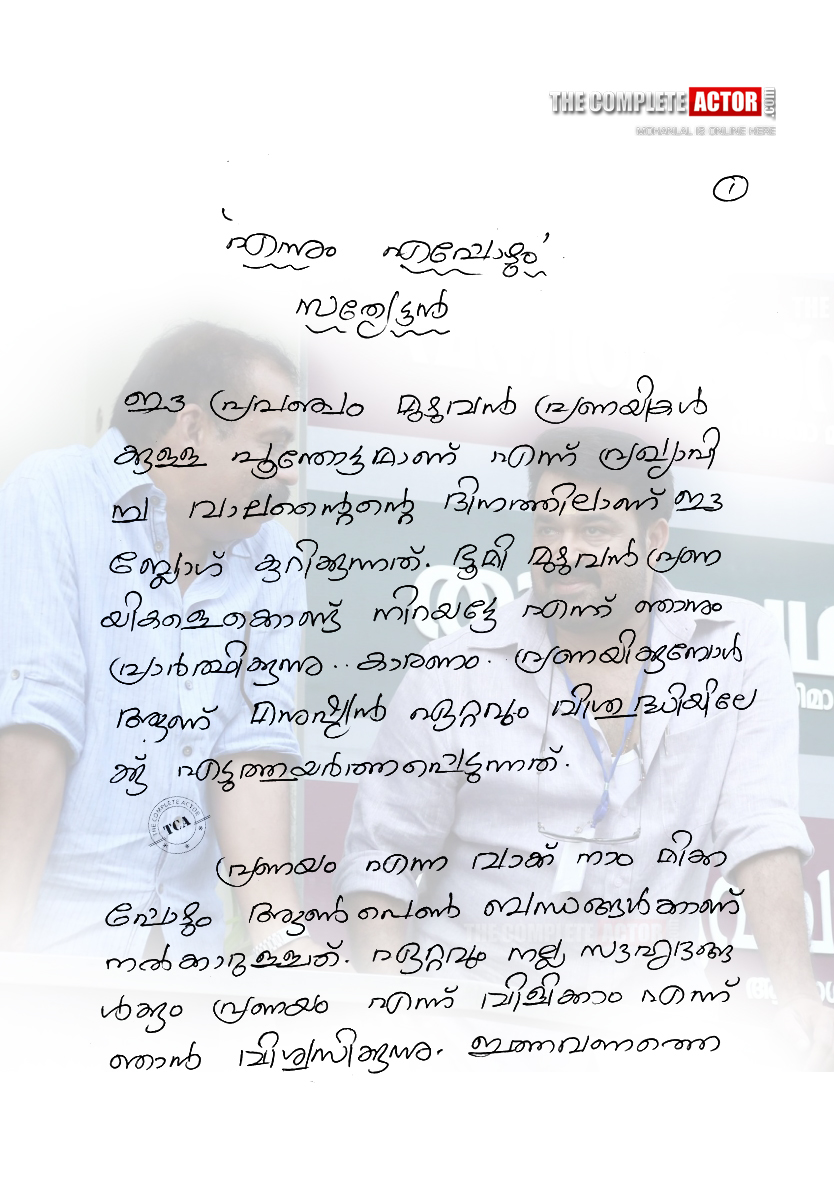 THE COMPLETE ACTOR .com
MOHANLAL IS ONLINE HERE
1
'എന്നും എപ്പോഴും'
സത്യേട്ടൻ
ഈ പ്രപഞ്ചം മുഴുവൻ പ്രണയികൾ
ക്കുള്ള പൂന്തോട്ടമാണ് എന്ന് പ്രഖ്യാപി
ച്ച വാലന്റൈന്റെ ദിനത്തിലാണ് ഈ
ബ്ലോഗ് കുറിക്കുന്നത്. ഭൂമി മുഴുവൻ പ്രണ
യികളെക്കൊണ്ട് നിറയട്ടേ എന്ന് ഞാനും
പ്രാർത്ഥിക്കുന്നു.. കാരണം. പ്രണയിക്കുമ്പോൾ
ആണ് മനുഷ്യൻ ഏറ്റവും വിശുദ്ധിയിലേ
ക്ക് എടുത്തുയർത്തപ്പെടുന്നത്.
THE COMPLETE ACTOR
TCA
പ്രണയം എന്ന വാക്ക് നാം മിക്ക
പ്പോഴും ആൺ പെൺ ബന്ധങ്ങൾക്കാണ്
നൽകാറുള്ളത്. ഏറ്റവും നല്ല സൗഹൃദങ്ങ
ൾക്കും പ്രണയം എന്ന് വിളിക്കാം എന്ന്
ഞാൻ വിശ്വസിക്കുന്നു. ഇത്തവണത്തെ